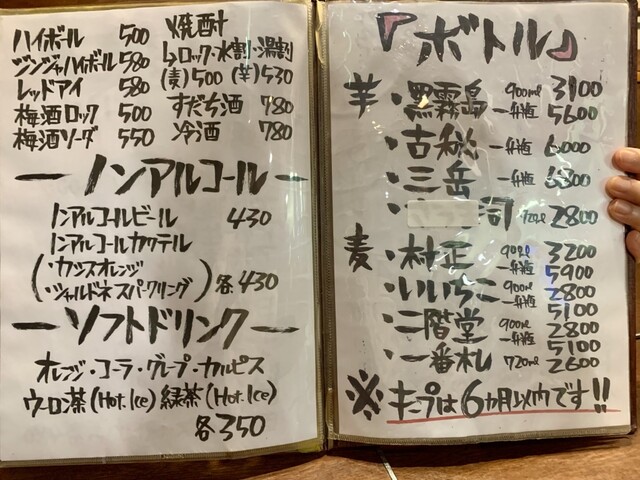 ハイボール 500
ジンジャハイボール 580
レッドアイ 580
梅酒ロック 500
梅酒ソーダ 550
焼酎
↳ロック・水割・湯割
(麦)500 (芋)530
すだち酒 780
冷酒 780
ノンアルコール
ノンアルコールビール 430
ノンアルコールカクテル
(・カシスオレンジ
・シャルドネスパークリング) 各430
ソフトドリンク
オレンジ・コーラ・グレープ・カルピス
ウーロン茶(Hot.Ice) 緑茶(Hot.Ice)
各350
『ボトル』
芋・黒霧島 900ml 3100
一升瓶 5600
・古秘 一升瓶 6000
・三岳 一升瓶 6800
司 720ml 2800
麦・村正 900ml 3200
一升瓶 5900
・いいちこ 900ml 2800
一升瓶 5100
・二階堂 900ml 2800
一升瓶 5100
・一番札 720ml 2600
※キープは6カ月以内です!!